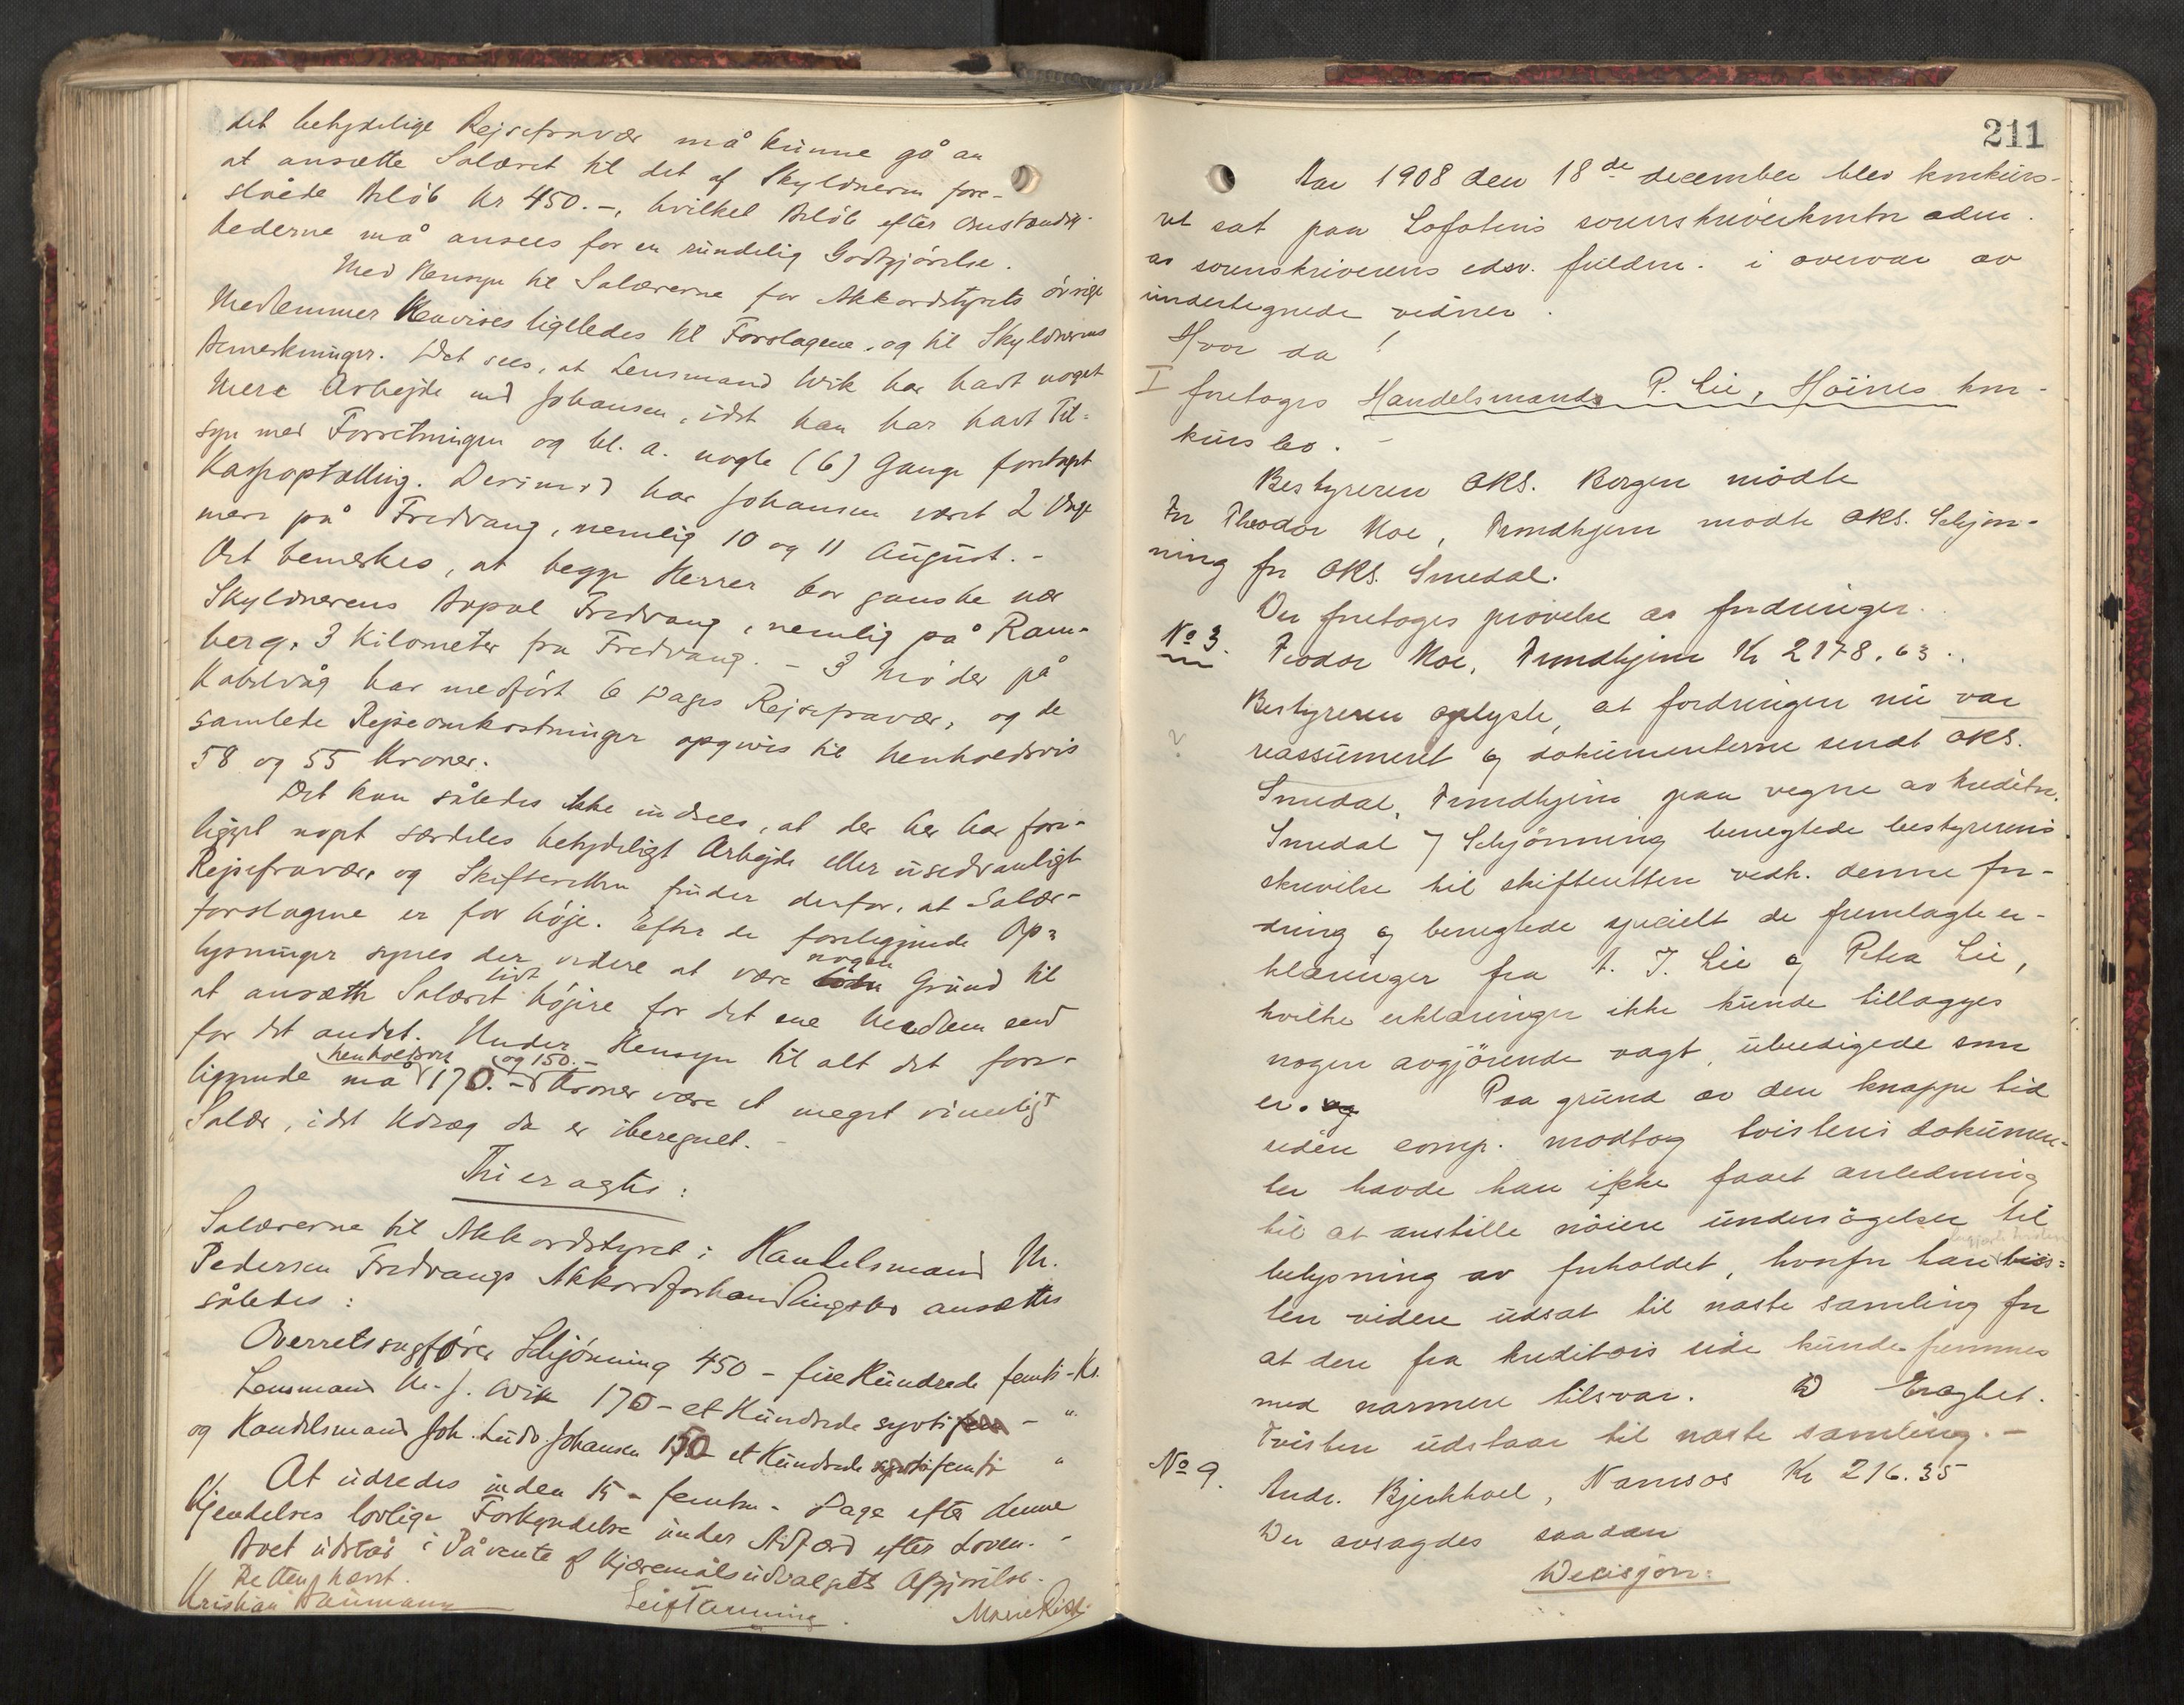 det betydelige Rejsefravær må kunne gå an
at ansætte Salæret til det af Skyldneren fore-
slåede Beløb kr 450.-, hvilket Beløb efter Omstændig-
hederne må ansees for en rundelig Godtgjørelse.
Med Hensyn til Salærerne for Akkordstyrets øvrige
Medlemmer henvises ligeledes til Forslagene og til Skyldnerens
Bemerkninger. Det sees, at Lensmand Wik har havt noget
mere Arbejde end Johansen, idet han har havt Til-
syn med Forretningen og bl. a. nogle (6) Gange foretaget
Kasseoptælling. Derimod har Johansen været 2 Dage
mere på Fredvang, nemlig 10 og 11 August. -
Det bemerkes, at begge Herrer bor ganske nær
Skyldnerens Bopæl Fredvang, nemlig på Ram-
berg, 3 Kilometer fra Fredvang. - 3 Møder på
Kabelvåg har medført 6 Dages Rejsefravær, og de
samlede Rejseomkostninger opgives til henholdsvis
58 og 55 Kroner.
Det kan således ikke indsees, at der her har fore-
ligget noget særdeles betydeligt Arbejde eller usedvanligt
Rejsefravær, og Skifteretten finder derfor, at Salær-
forslagene er for høje. Efter de foreliggende Op-
lysninger synes der videre at være nogen Grund til
at ansætte Salæret lidt højere for det ene Medlem end
for det andet. Under Hensyn til alt det fore-
liggende må henholdsvis 170.- og 150.- Kroner være et meget rimeligt
Salær, idet Udlæg da er iberegnet. -
Thi eragtes:
Salærerne til Akkordstyret i Handelsmand M.
Pedersen Fredvangs Akkordforhandlingsbo ansættes
således:
Overretssagfører Schjønning 450 - fire Hundrede femti - Kr.
Lensmand M. J. Wik 170 - et Hundrede sytti - "
og Handelsmand Joh. Ludv. Johansen 150 et Hundrede femti "
At udredes inden 15 - femten - Dage efter denne
Kjendelses lovlige Forkyndelse under Adfærd efter Loven. -
Boet udstår i Påvente af Kjæremålsudvalgets Afgjørelse.
Retten hævet.
Kristian Naumann Leif Tanning. Marie Risk
211
Aar 1908 den 18de december blev konkurs-
ret sat paa Lofotens sorenskriverkontor adm.
av sorenskriverens edsv. fuldm. i overvær av
undertegnede vidner.
Hvor da!
I foretoges Handelsmand P. Lie, Höines kon-
kursbo. -
Bestyreren OKS. Borgen mödte
For Theodor Moe, Trondhjem mödte OKS. Schjön-
ning for OKS. Smedal.
Der foretoges prövelse av fordringer.
No 3. Teodor Moe, Trondhjem Kr 2178,63.
Bestyreren oplyste, at fordringen nu var
reassumeret og dokumenterne sendt OKS.
Smedal, Trondhjem paa vegne av kreditor.
Smedal / Schjönning benegtede bestyrerens
skrivelse til skifteretten vedk. denne for-
dring og benegtede specielt de fremlagte er-
klæringer fra A. J. Lie og Petra Lie,
hvilke erklæringer ikke kunde tillægges
nogen avgjörende vegt, ubeedigede som
er. Paa grund av den knappe tid
siden comp. modtog tvistens dokumen-
ter havde han ikke faaet anledning
til at anstille nöiere undersögelser til
belysning av forholdet, hvorfor han begjærte tvisten tvis-
ten videre udsat til næste samling for
at den fra kreditors side kunde fremmes
med nærmere tilsvar. D Eragtet.
Tvisten udstaar til næste samling. -
No 9. Andr. Bjerkhoel, Namsos Kr 216.35
Der avsagdes saadan
Decisjon: